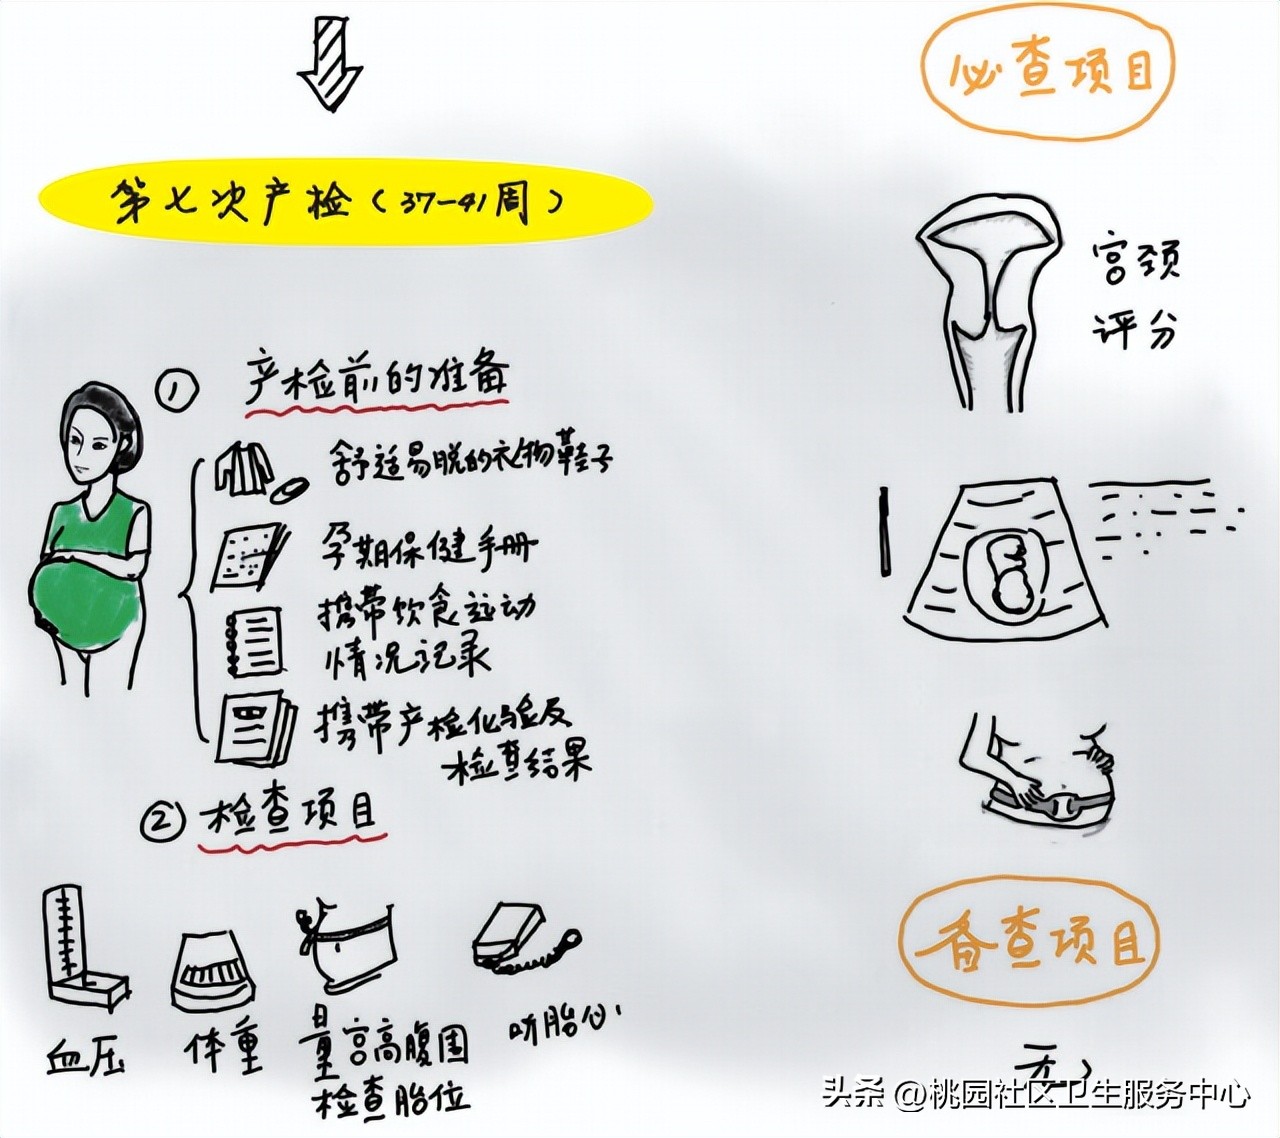 第七次产检（37-41周）
① 产检前的准备
舒适易脱的衣物鞋子
孕期保健手册
携带饮食运动
情况记录
携带产检化验及
检查结果
② 检查项目
血压
体重
量宫高腹围
检查胎位
听胎心
必查项目
宫颈
评分
备查项目
无
头条 @桃园社区卫生服务中心